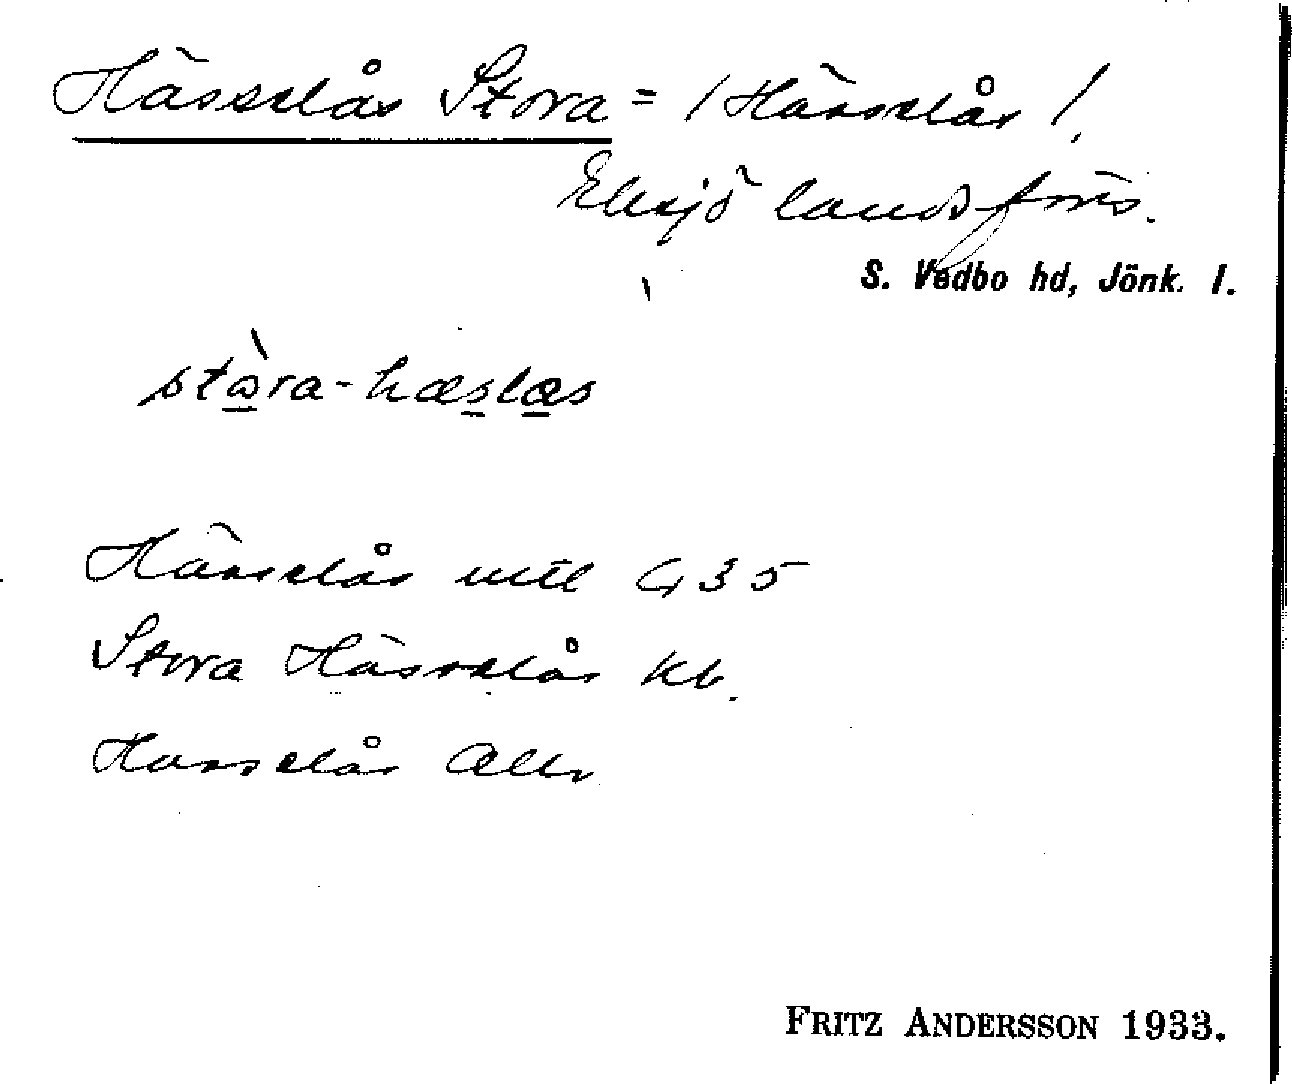 Hässelås Stora = / Hässelås /.
Eksjö landsförs.
S. Vedbo hd, Jönk. l.
stòra-hæslås
Hässelås mtl G 35
Stora Hässelås Kb.
Hasselås Allm
FRITZ ANDERSSON 1933.